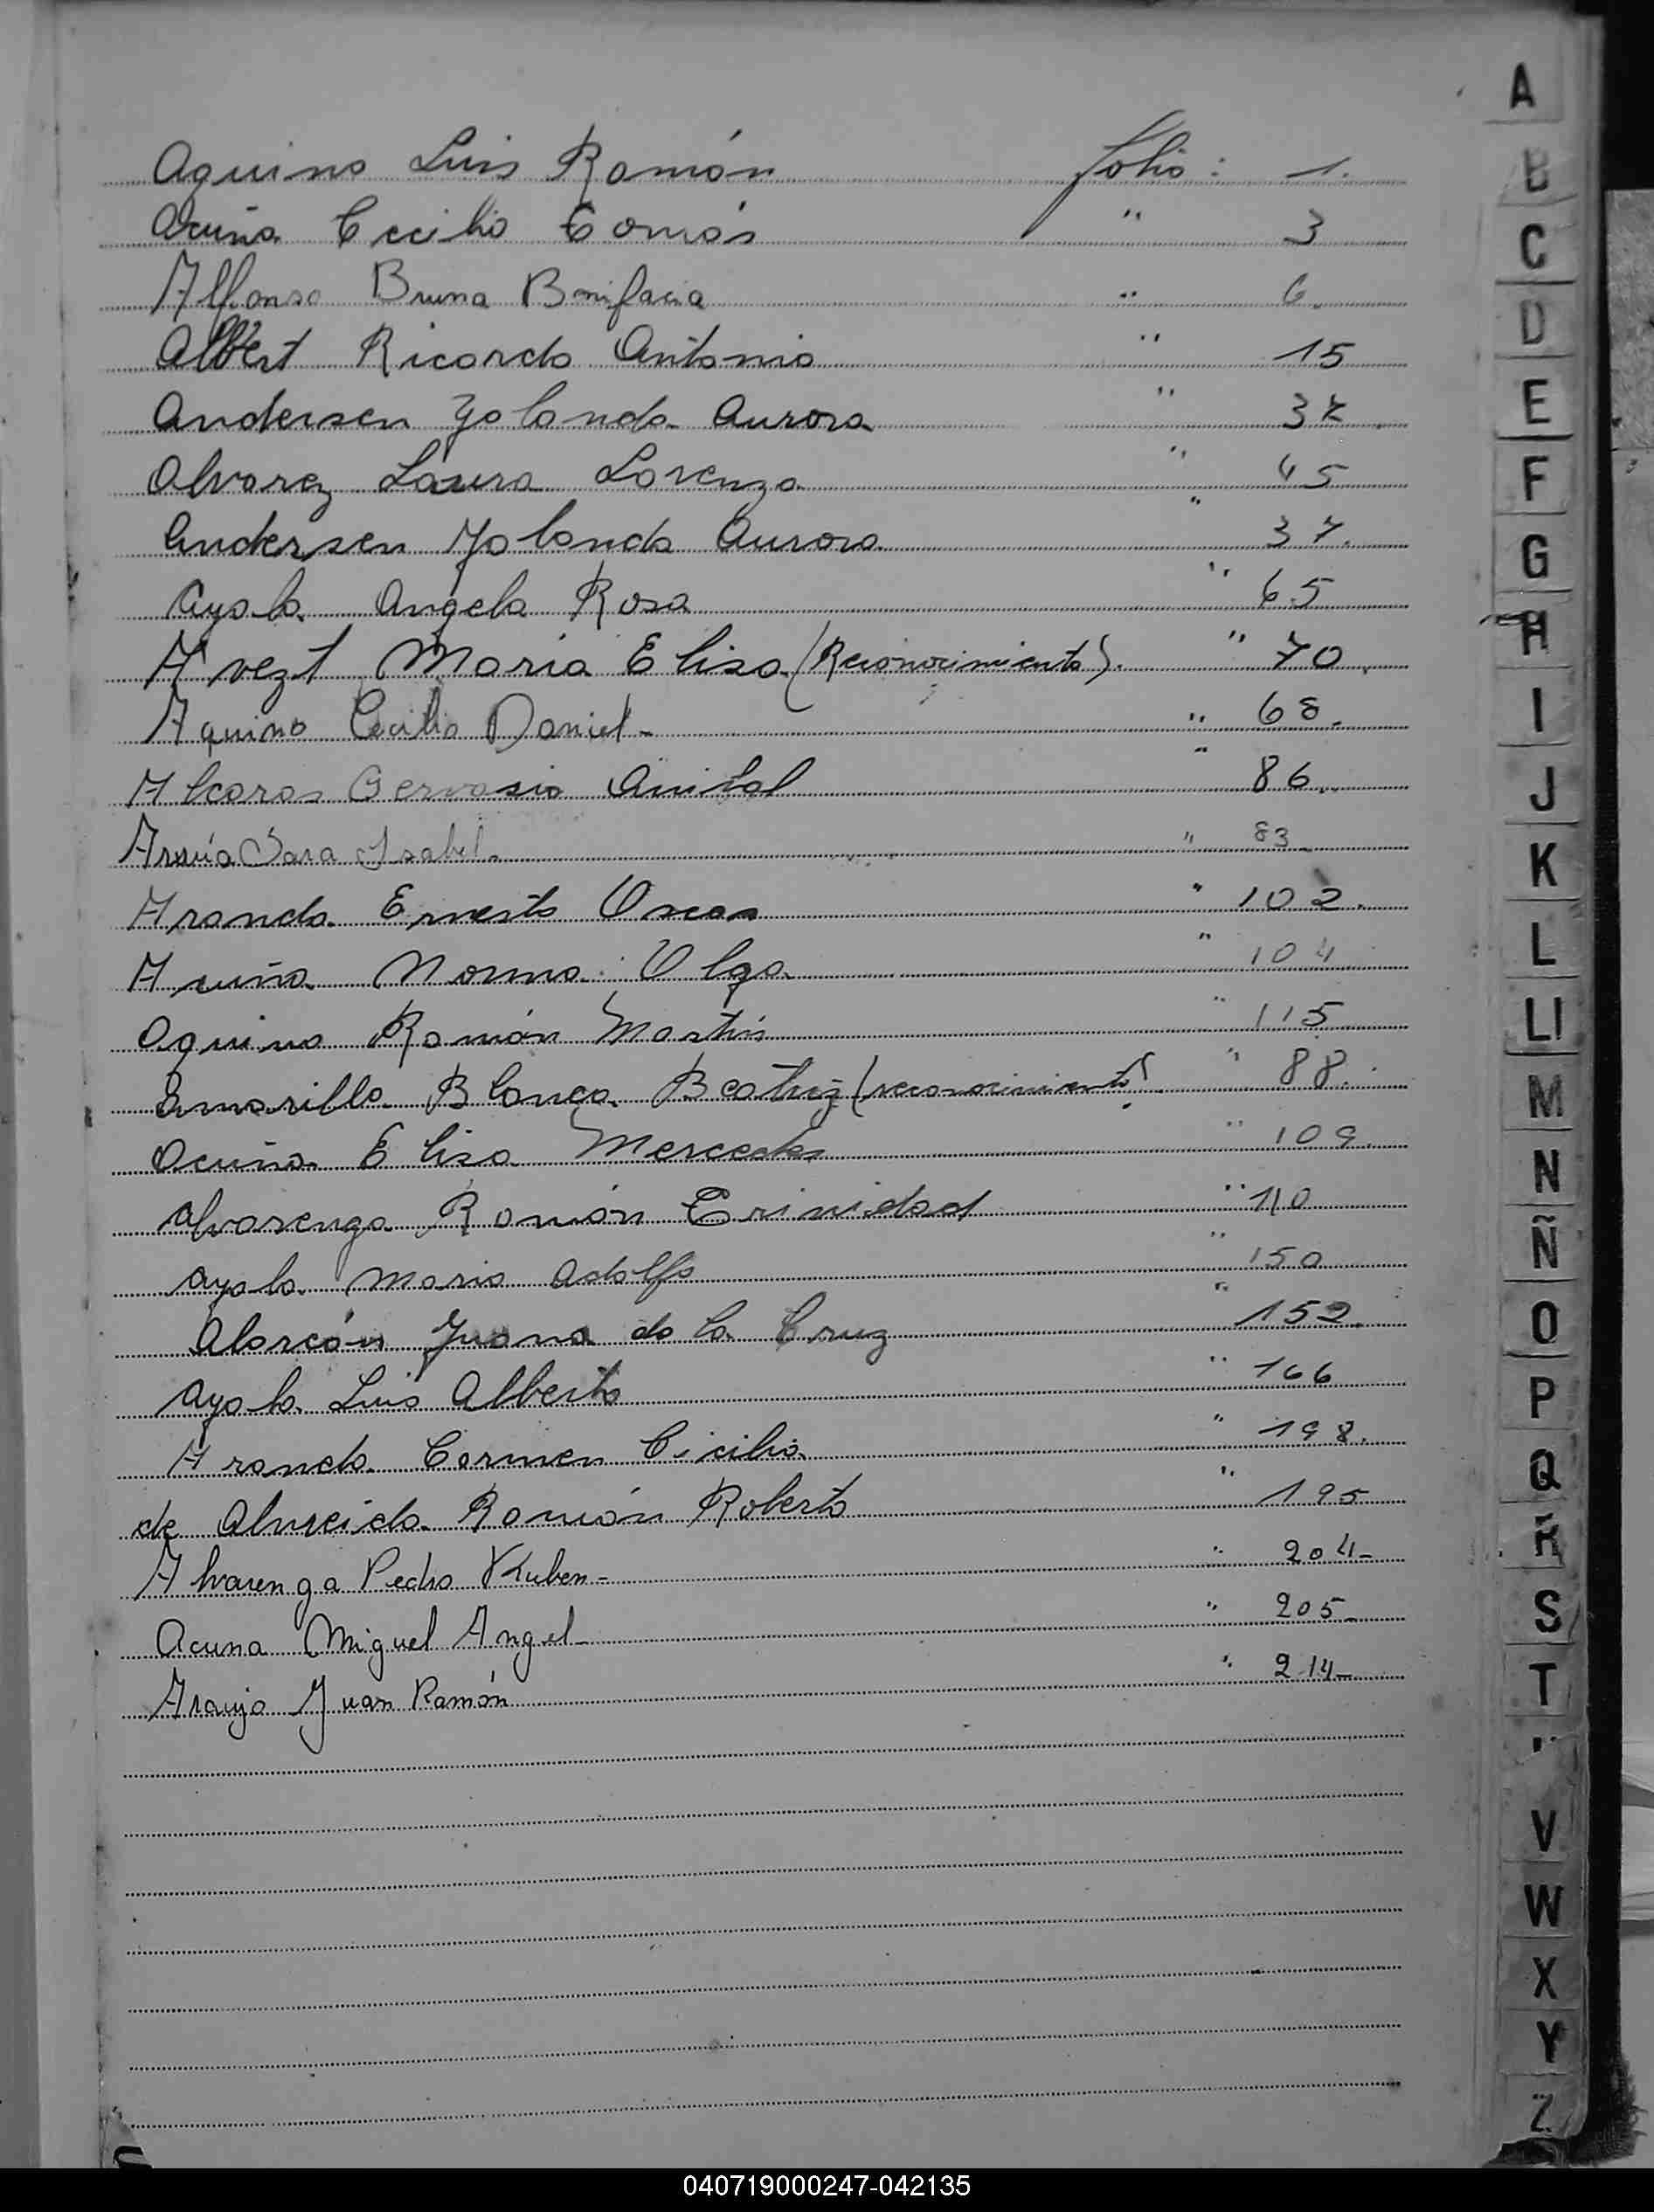 Aquino Luis Ramón folio: 1.
Acuña Cecilio Tomás " 3
Alfonso Bruna Bonifacia " 6.
Albert Ricardo Antonio " 15
Andersen Yolanda Aurora " 37
Alvarez Laura Lorenza " 45
Andersen Yolanda Aurora " 37.
Ayala Angela Rosa " 65
Avezt Maria Elisa (Reconocimiento). " 70.
Aquino Cecilio Daniel - " 68.
Alcaras Gervasio Anibal " 86.
Sara Isabel - " 83
Aranda Ernesto Oscar " 102.
Acuña Norma Olga " 104
Aquino Ramón Martin " 115
Amarilla Blanca Beatriz (reconocimiento) " 88.
Acuña Elisa Mercedes " 109.
Alvarenga Ramón Trinidad " 110
Ayala Mario Adolfo " 150
Alarcón Juana de la Cruz " 152.
Ayala Luis Alberto " 166
Aranda Carmen Cicilia " 198.
de Almeida Ramón Roberto " 195
Alvarenga Pedro Ruben - " 204-
Acuna Miguel Angel - " 205-
Araujo Juan Ramón " 214-
A
B
C
D
E
F
G
H
I
J
K
L
Ll
M
N
Ñ
O
P
Q
R
S
T
V
W
X
Y
Z
040719000247-042135